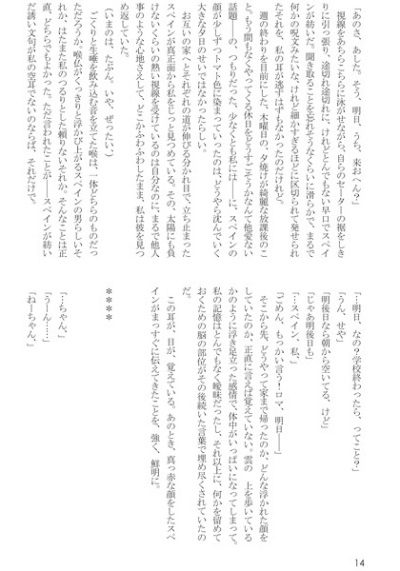 「あのさ、あした。そう、明日、うち、来おへん？」
　視線をあちらこちらに泳がせながら、自らのセーターの裾をしき
りに引っ張り、途切れ途切れに、けれどとんでもない早口でスペイ
ンが紡いだ。聞き取ることを忘れそうなくらいに滑らかで、まるで
何かの呪文みたいな、けれど細かすぎるほどに区切られて発せられ
たそれを、私の耳が逃すはずもなかったのだけれど。
　週の終わりを目前にした、木曜日の、夕焼けが綺麗な放課後のこ
と。もう間もなくやってくる休日をどうすごそうかなんて他愛ない
話題――の、つもりだった。少なくとも私には――に、スペインの
顔が少しずつトマト色に染まっていったのは、どうやら沈んでいく
大きな夕日のせいではなかったらしい。
　お互いの家へとそれぞれの道が伸びる分かれ目で、立ち止まった
スペインが真正面から私をじっと見つめている。その、太陽にも負
けないくらいの熱い視線を受けているのは自分なのに、まるで他人
事のような心地さえして、どこかふわふわしたまま、私は彼を見つ
め返していた。
（いまのは、たぶん、いや、ぜったい、）
　ごくりと生唾を飲み込む音を立てた喉は、一体どちらのものだっ
ただろうか。喉仏がくっきりと浮かび上がるスペインの男らしいそ
れか、はたまた私のつるりとした頼りないそれか。そんなことは正
直、どちらでもよかった。ただ言われたことが――スペインが紡い
だ誘い文句が私の空耳でないのならば、それだけで。
「…明日、なの？学校終わったら、ってこと？」
「うん、せや」
「明後日なら朝から空いてる、けど」
「じゃあ明後日も」
「…スペイン、私、」
「ごめん、もっかい言う！ロマ、明日――」
　そこから先、どうやって家まで帰ったのか、どんな浮かれた顔を
していたのか、正直に言えば覚えていない。雲の　上を歩いている
かのように浮き足立った感情で、体中がいっぱいになってしまって。
私の記憶はとんでもなく曖昧だったし、それ以上に、何かを留めて
おくための脳の部位がその後続いた言葉で埋め尽くされていたの
だ。
　この耳が、目が、覚えている。あのとき、真っ赤な顔をしたスペ
インがまっすぐに伝えてきたことを、強く、鮮明に。
＊＊＊＊
「…ちゃん、」
「うーん……」
「ねーちゃん、」
14